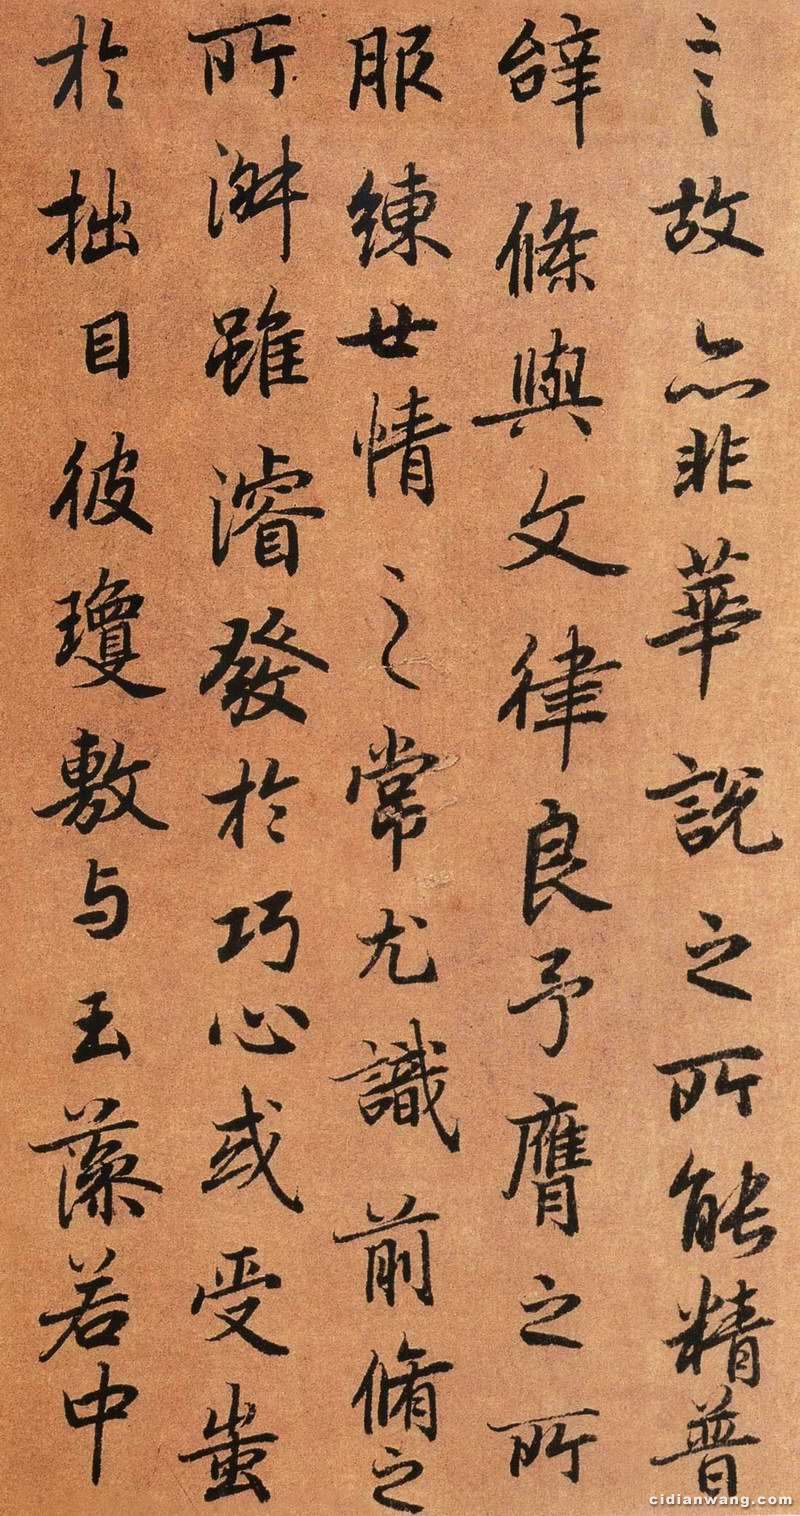 之故亦非華說之所能精普
辝條與文律良予膺之所
服練世情之常尤識前脩之
所淋雖濬發於巧心或受蚩
於拙目彼瓊敷与玉藻若中
cidianwang.com